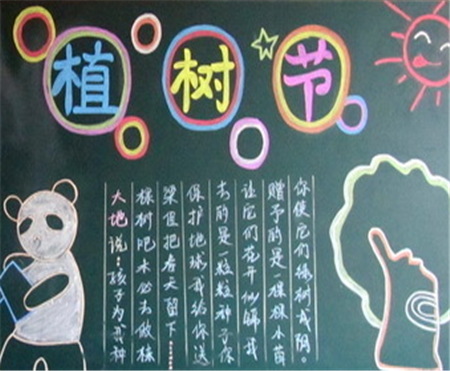 植树节
大地说：孩子为我种
棵树吧未必去做栋
梁但把春天留下……
保护地球我给你送
去的是一粒粒种子你
让它们花开似锦我
赠予的是一棵棵小苗
你使它们绿树成阴。